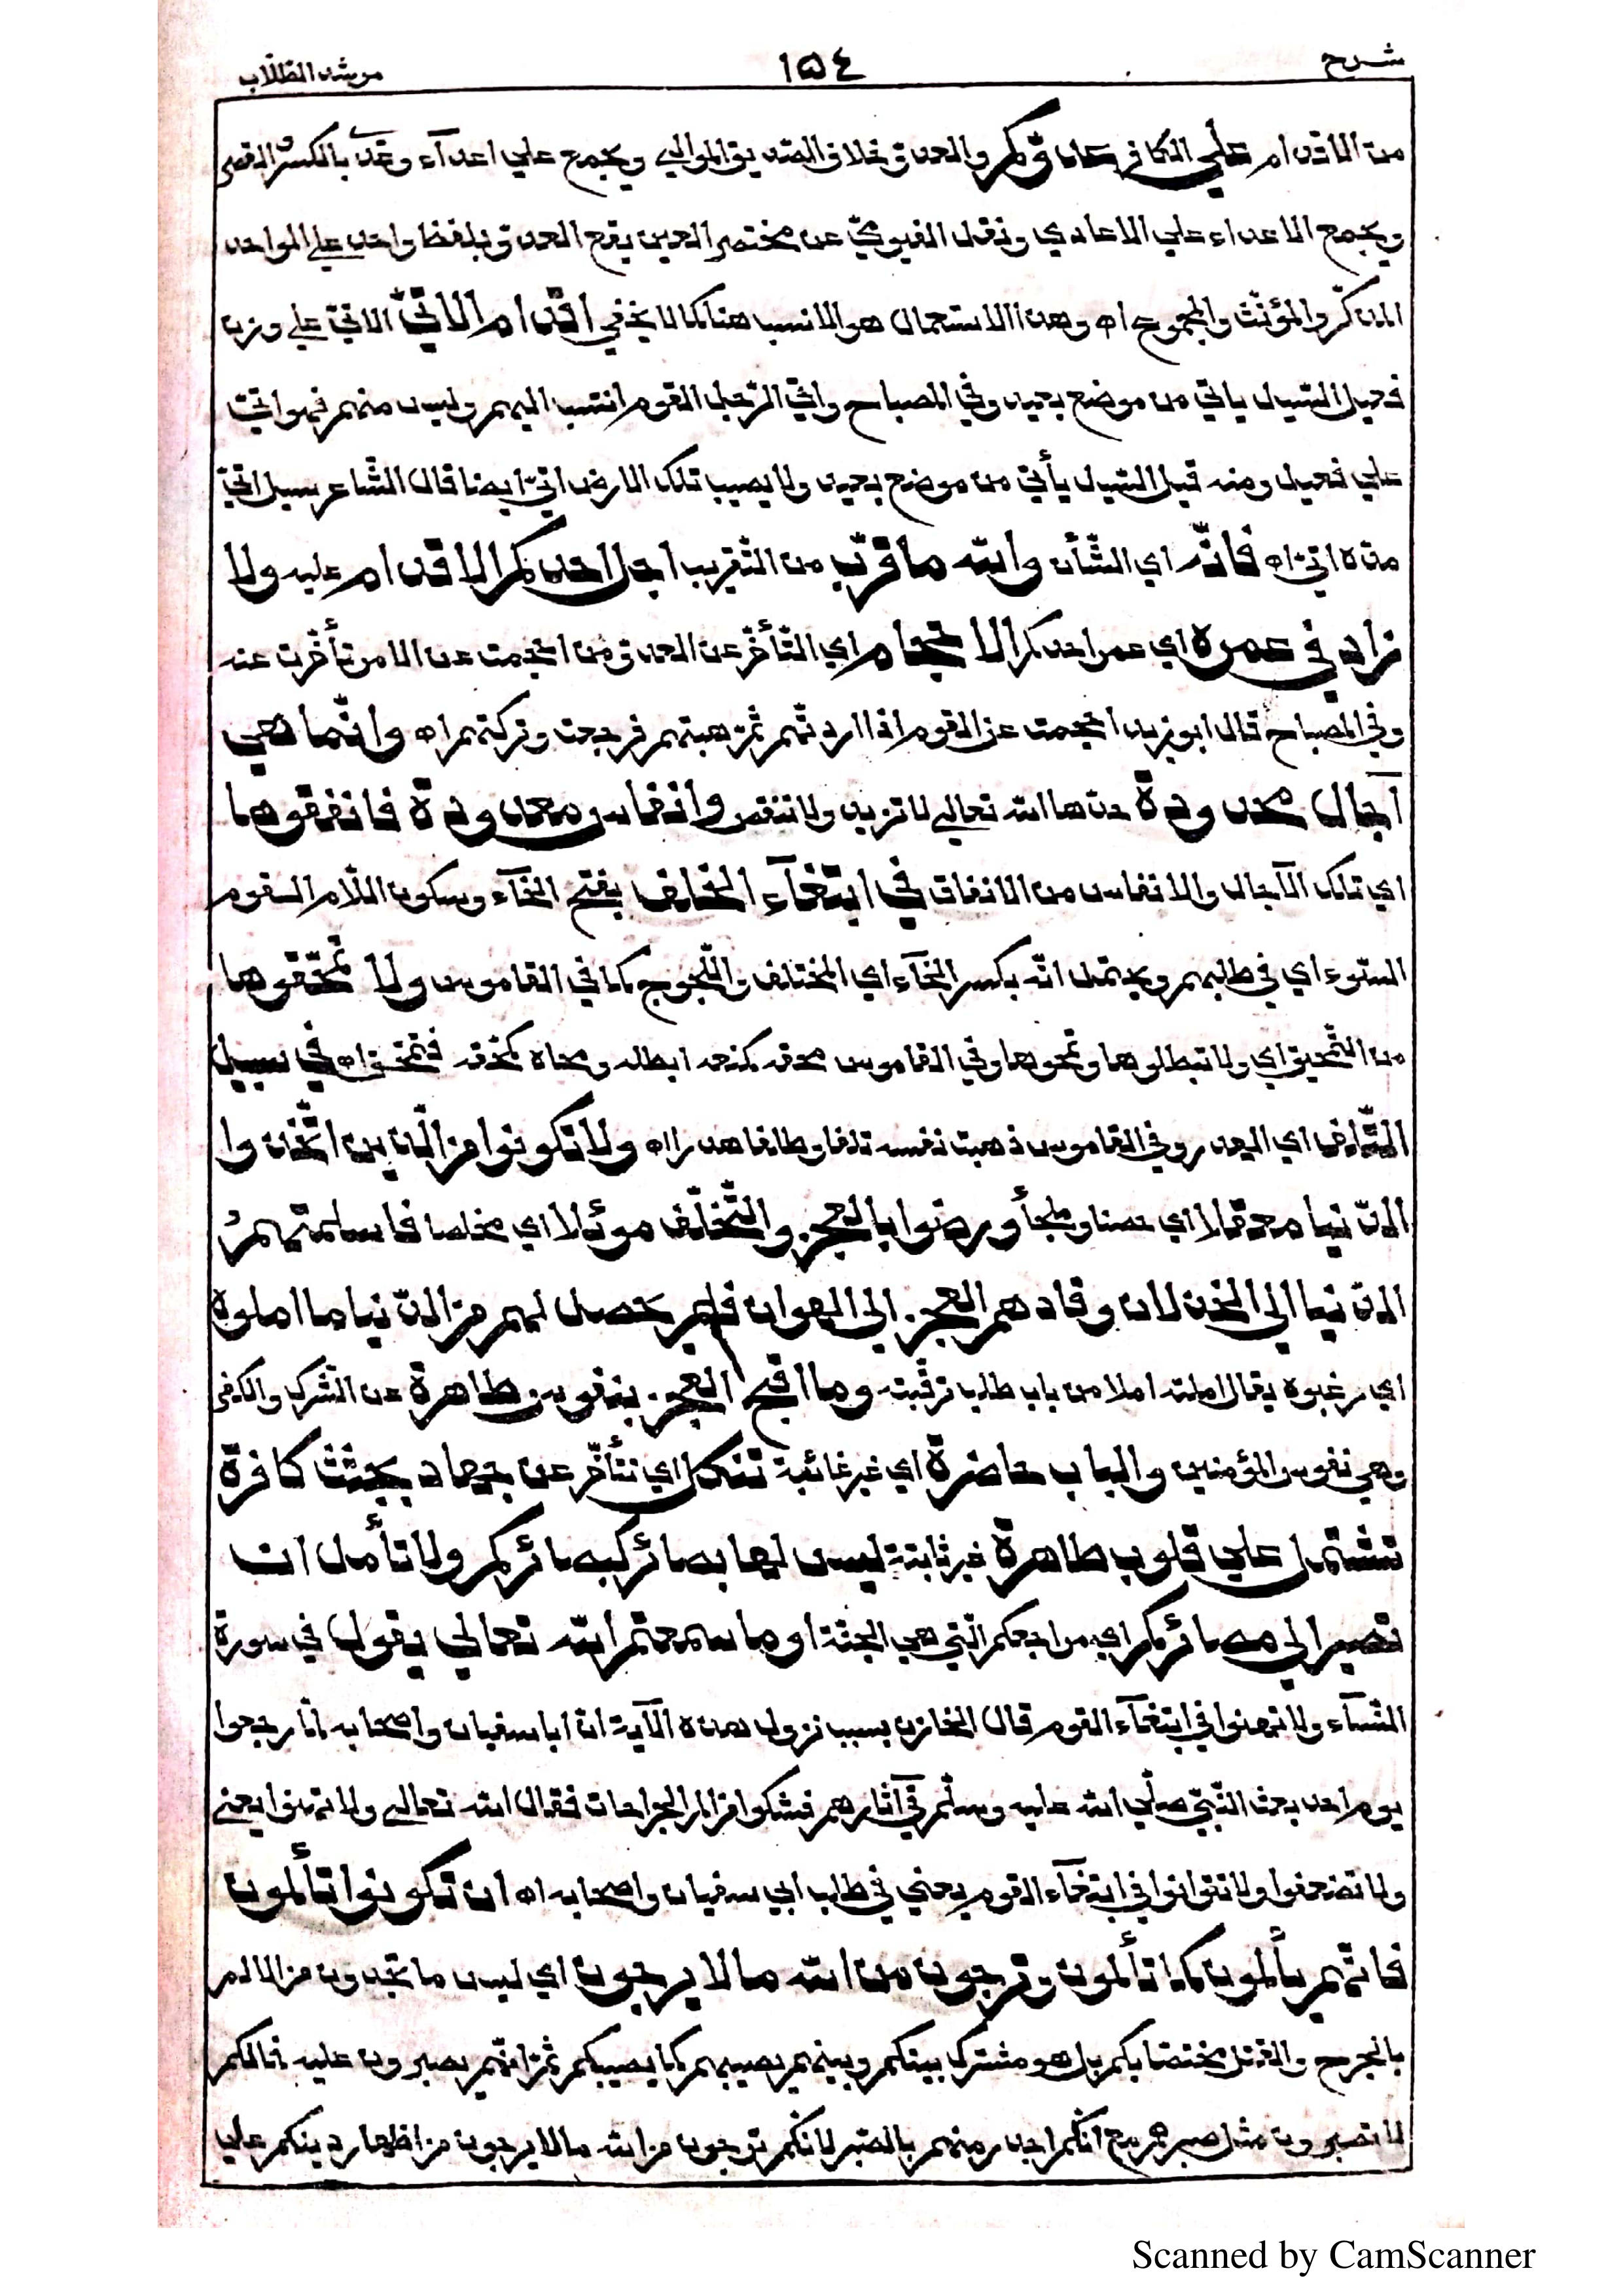 شرح ١٥٤ مرشد الطّلّاب
من الاقدام علي الكافر عدوّكم والعدوّ خلاف الصّديق الموالي ويجمع علي اعدآء وعِدًي بالكسر والقصر
ويجمع الاعداء علي الاعادي ونقل الفيوميّ عن مختصر العين يقع العدوّ بلفظ واحد علي الواحد
المذكّر والمؤنّث والمجموع اه وهذا الاستعمال هو الانسب هنا كما لا يخفي اقدام الاتيّ الاتيّ علي وزن
فعيل السّيل ياتي من موضع بعيد وفي المصباح واتي الرّجل القوم انتسب اليهم وليس منهم فهو اتيّ
علي فعيل ومنه قيل السّيل يأتي من موضع بعيد ولا يصيب تلك الارض اتيّ ايضا قال الشّاعر سيل اتيّ
مدّه اتيّ اه فانّه اي الشّأن والله ما قرّب من التّقريب اجل احدكم الاقدام عليه ولا
زاد في عمره اي عمر احدكم الاحجام اي التّأخّر عن العدوّ من احجمت عن الامر تأخّرت عنه
وفي المصباح قال ابو زيد احجمت عن القوم اذا اردتّهم ثمّ هبتهم فرجعت وتركتهم اه وانّما هي
آجال محدودة حدّها الله تعالي لا تزيد ولا تنقص وانفاس معدودة فانفقوها
اي تلك الآجال والانفاس من الانفاق في ابتغآء الخلف بفتح الخآء وسكون اللّام القوم
السّوء اي في طلبهم ويحتمل انّه بكسر الخآء اي المختلف واللّجوج كما في القاموس ولا تمحّقوها
من التّمحيق اي ولا تبطلوها وتمحوها وفي القاموس محقه كمنعه ابطله ومحاه كمحّقه فتمحّق اه في سبيل
التّلف اي الهدر وفي القاموس ذهبت نفسه تلفا وطلفا هدرا اه ولا تكونوا من الّذين اتّخذوا
الدّنيا معقلا اي حصنا وملجأ ورضوا بالعجز والتّخلّف موئلا اي مخلصا فاسلمتهم
الدّنيا الي الخذلان وقادهم العجز الي الهوان فلم يحصل لهم من الدّنيا ما املوه
اي رغبوه يقال املته املا من باب طلب ترقّبته وما اقبح العجز بنفوس طاهرة عن الشّرك والكفر
وهي نفوس المؤمنين والباب حاضرة اي غير غائبة تنكل اي تتأخّر عن جهاد بجثث كافرة
تشتمل علي قلوب طاهرة غير ثابتة ليس لها بصائر كبصائركم ولا تأمل ان
تصير الي مصائركم اي مراجعكم الّتي هي الجنّة او ما سمعتم الله تعالي يقول في سورة
النّسآء ولا تهنوا في ابتغآء القوم قال الخازن سبب نزول هذه الآية انّ ابا سفيان واصحابه لمّا رجعوا
يوم احد بعث النّبيّ صلّي الله عليه وسلّم في آثارهم فشكوا من الم الجراحات فقال الله تعالي ولا تهنوا يعني
ولا تضعفوا ولا تتوانوا في ابتغآء القوم يعني في طلب ابي سفيان واصحابه اه ان تكونوا تألمون
فانّهم يألمون كما تألمون وترجون من الله ما لا يرجون اي ليس ما تجدون من الالم
بالجرح والقتل مختصّا بكم بل هو مشترك بينكم وبينهم يصيبهم كما يصيبكم ثمّ انّهم يصبرون عليه فما لكم
لا تصبرون مثل صبرهم مع انّكم اجدر منهم بالصّبر لانّكم ترجون من الله ما لا يرجون من اظهار دينكم علي
Scanned by CamScanner